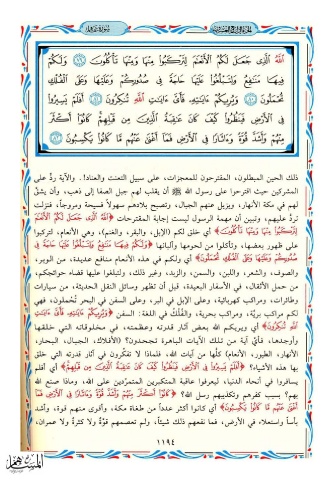 اللَّهُ الَّذِى جَعَلَ لَكُمُ الْأَنْعَامَ لِتَرْكَبُوا مِنْهَا وَمِنْهَا تَأْكُلُونَ ﴿٧٩﴾ وَلَكُمْ
فِيهَا مَنَافِعُ وَلِتَبْلُغُوا عَلَيْهَا حَاجَةً فِى صُدُورِكُمْ وَعَلَيْهَا وَعَلَى الْفُلْكِ
تُحْمَلُونَ ﴿٨٠﴾ وَيُرِيكُمْ ءَايَٰتِهِ فَأَىَّ ءَايَٰتِ اللَّهِ تُنكِرُونَ ﴿٨١﴾ أَفَلَمْ يَسِيرُوا
فِى الْأَرْضِ فَيَنظُرُوا كَيْفَ كَانَ عَٰقِبَةُ الَّذِينَ مِن قَبْلِهِمْ كَانُوا أَكْثَرَ
مِنْهُمْ وَأَشَدَّ قُوَّةً وَءَاثَارًا فِى الْأَرْضِ فَمَا أَغْنَىٰ عَنْهُم مَّا كَانُوا يَكْسِبُونَ ﴿٨٢﴾
ذلك الحين المبطلون، المقترحون للمعجزات، على سبيل التعنت والعناد!. والآية ردٌّ على
المشركين حيث اقترحوا على رسول الله ﷺ أن يقلب لهم جبل الصفا إلى ذهب، وأن يشقَّ
لهم في مكة الأنهار، ويزيل عنهم الجبال، وتصبح بلادهم سهولاً فسيحة ومروجاً، فنزلت
تردُّ عليهم، وتبين أن مهمة الرسول ليست إجابة المقترحات ﴿اللَّهُ الَّذِى جَعَلَ لَكُمُ الْأَنْعَامَ
لِتَرْكَبُوا مِنْهَا وَمِنْهَا تَأْكُلُونَ﴾ أي خلق لكم (الإبل، والبقر، والغنم)، وهي الأنعام، لتركبوا
على ظهور بعضها، وتأكلوا من لحومها وألبانها ﴿وَلَكُمْ فِيهَا مَنَافِعُ وَلِتَبْلُغُوا عَلَيْهَا حَاجَةً فِى
صُدُورِكُمْ وَعَلَيْهَا وَعَلَى الْفُلْكِ تُحْمَلُونَ﴾ أي ولكم في هذه الأنعام منافع عديدة، من الوبر،
والصوف، والشعر، واللبن، والسمن، والزبد، وغير ذلك، ولتبلغوا عليها قضاء حوائجكم،
من حمل الأثقال، في الأسفار البعيدة، قبل أن تظهر وسائل النقل الحديثة، من سيارات
وطائرات، ومراكب كهربائية، وعلى الإبل في البر، وعلى السفن في البحر تُحملون، فهي
لكم مراكب بريَّة، ومراكب بحرية، والفُلْكُ في اللغة: السفن ﴿وَيُرِيكُمْ ءَايَٰتِهِ فَأَىَّ ءَايَٰتِ
اللَّهِ تُنكِرُونَ﴾ أي ويريكم الله بعض آثار قدرته وعظمته، في مخلوقاته التي خلقها
وأوجدها، فأيَّ آية من تلك الآيات الباهرة تجحدون؟ (الأفلاك، الجبال، البحار،
الأنهار، الطيور، الأنعام) كلُّها من آيات الله، فلماذا لا تفكِّرون في آثار قدرته التي خلق
بها هذه الأشياء؟ ﴿أَفَلَمْ يَسِيرُوا فِى الْأَرْضِ فَيَنظُرُوا كَيْفَ كَانَ عَٰقِبَةُ الَّذِينَ مِن قَبْلِهِمْ﴾ أي أفلم
يسافروا في أنحاء الدنيا، ليعرفوا عاقبة المتكبرين المتمردين على الله، وماذا صنع الله
بهم؟ بسبب كفرهم وتكذيبهم رسل الله؟ ﴿كَانُوا أَكْثَرَ مِنْهُمْ وَأَشَدَّ قُوَّةً وَءَاثَارًا فِى الْأَرْضِ فَمَا
أَغْنَىٰ عَنْهُم مَّا كَانُوا يَكْسِبُونَ﴾ أي كانوا أكثر عدداً من طغاة مكة، وأقوى منهم قوة، وأشد
بأساً واستعلاء في الأرض، فما نفعهم ذلك شيئاً، ولم تعصمهم قوَّةٌ ولا كثرةٌ ولا عمران،
١١٩٤